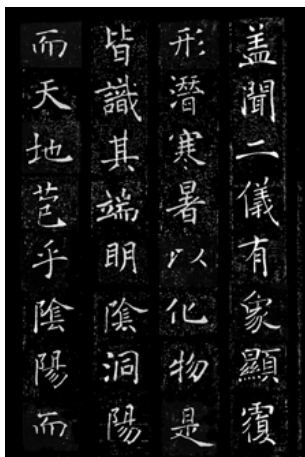 盖聞二儀有象顯覆
形潛寒暑以化物是
皆識其端明陰洞陽
而天地苞乎陰陽而